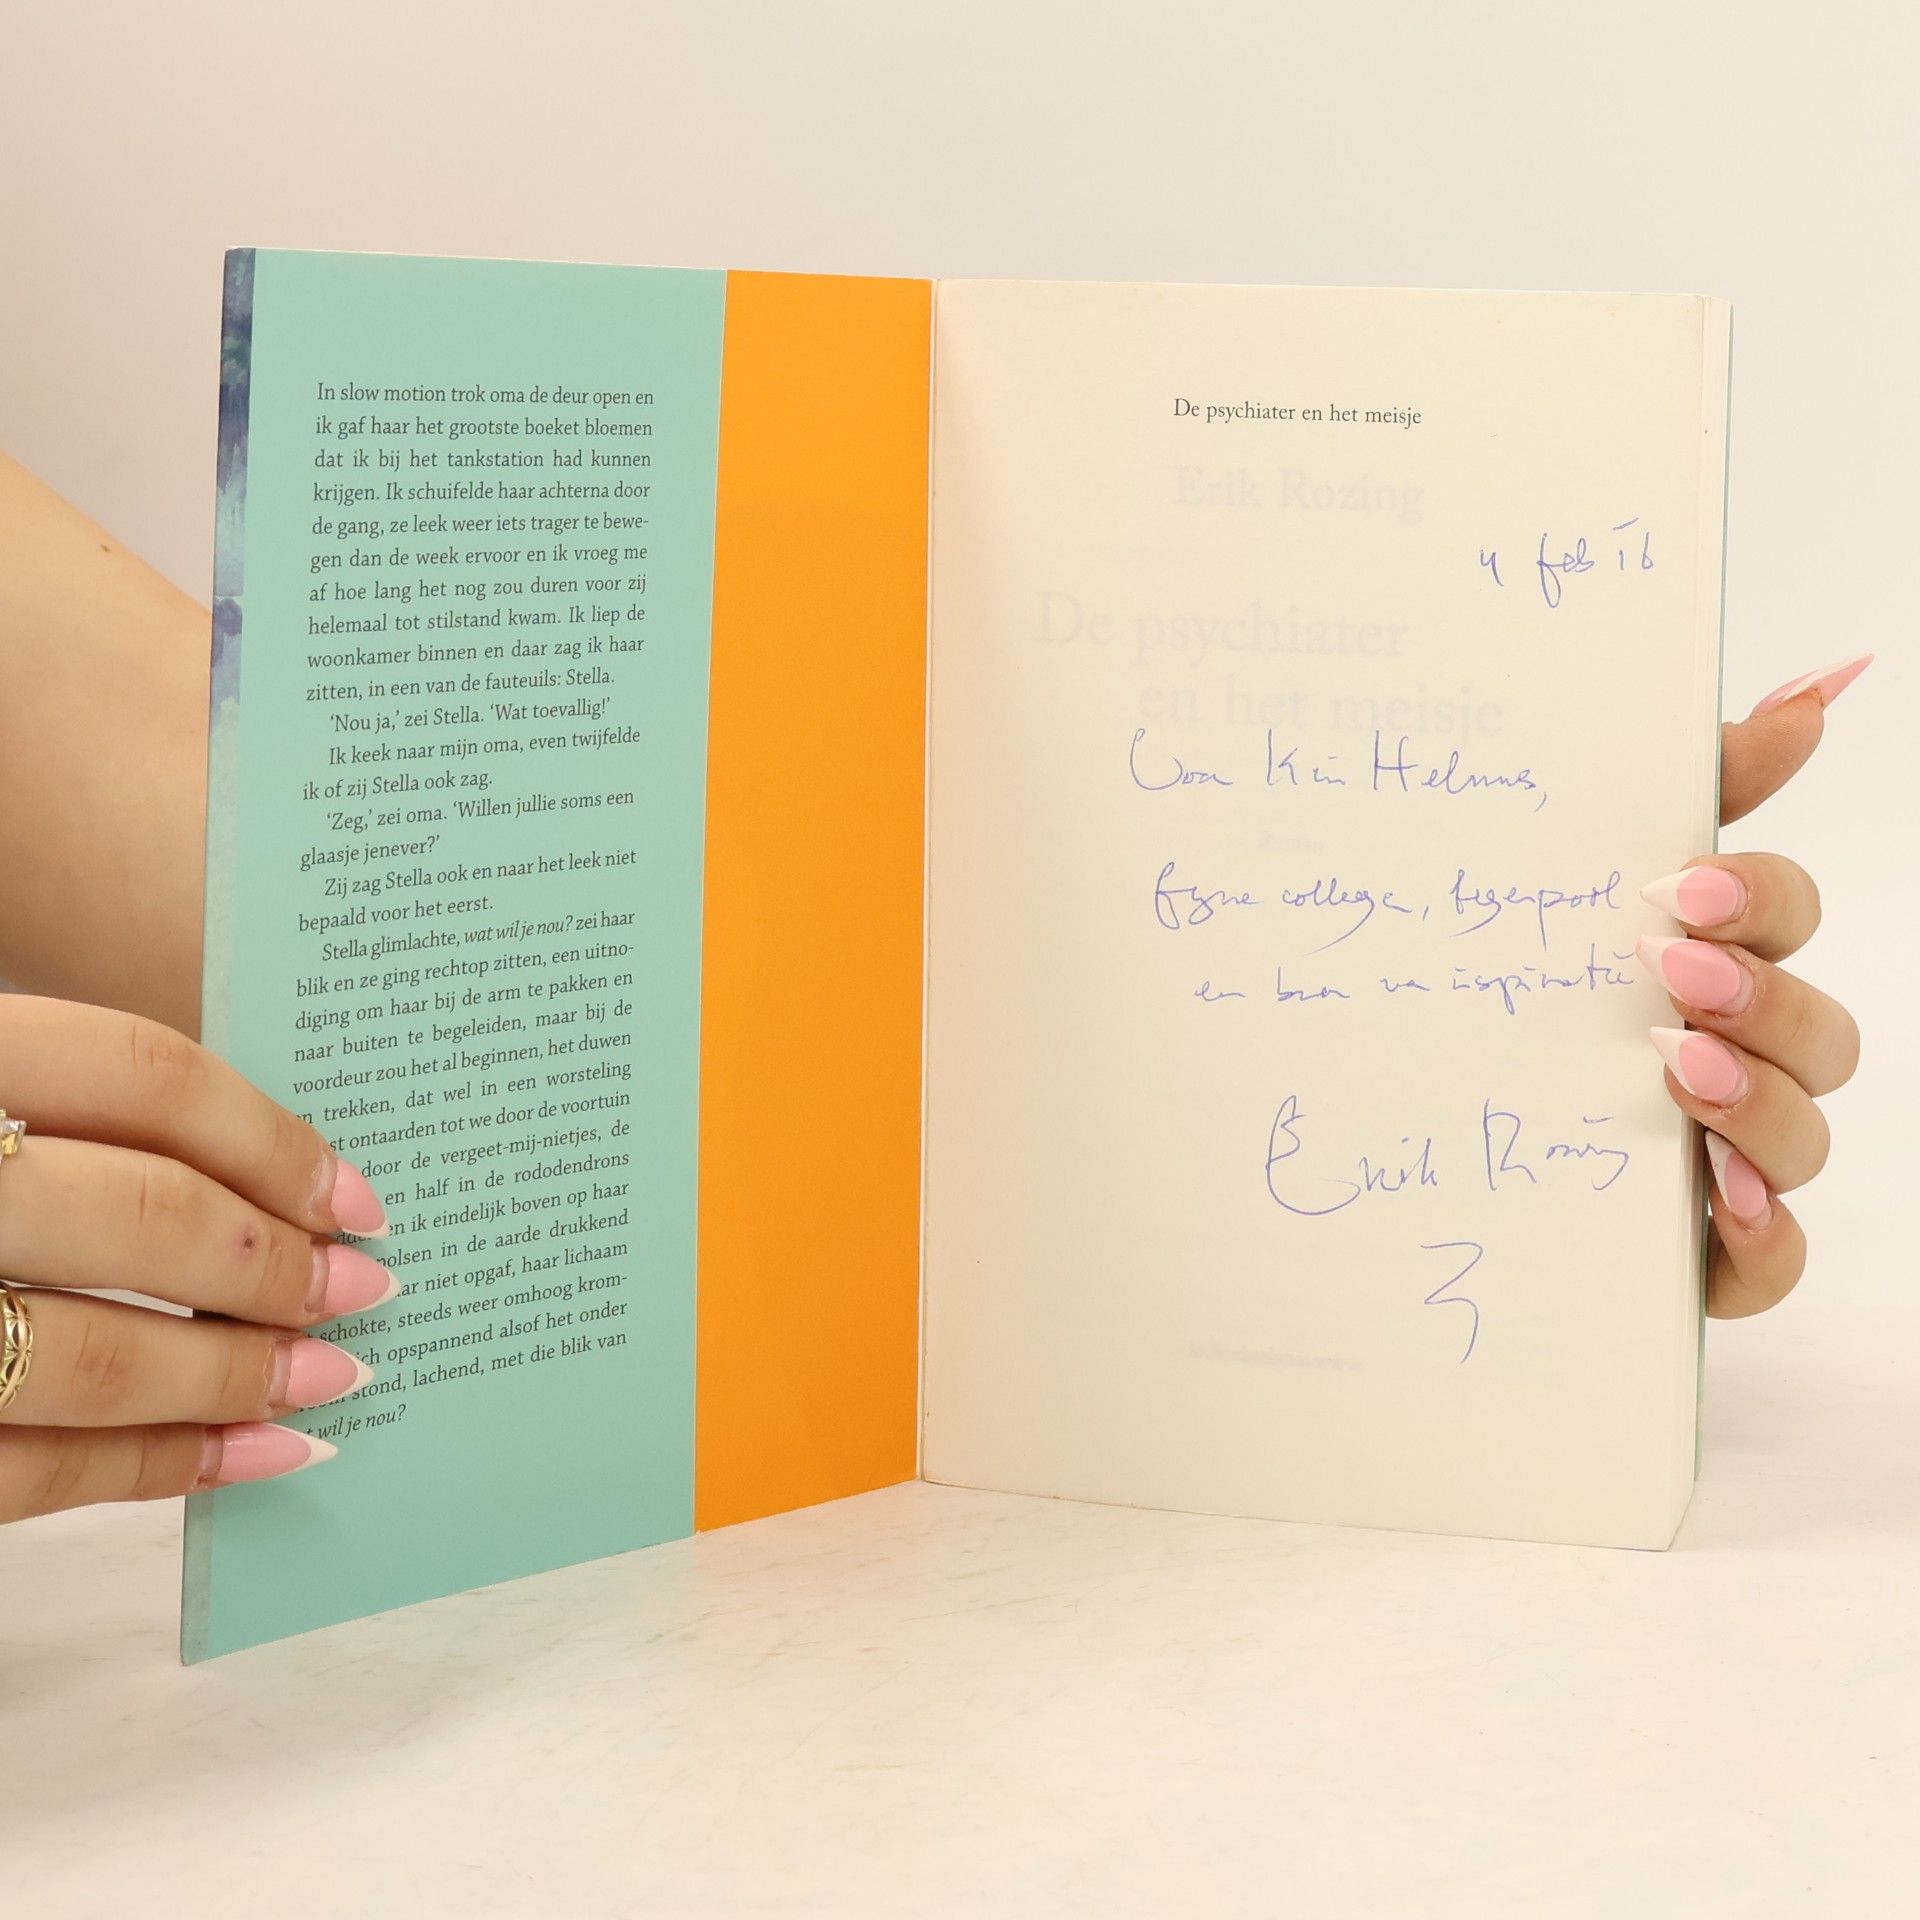 In slow motion trok oma de deur open en
ik gaf haar het grootste boeket bloemen
dat ik bij het tankstation had kunnen
krijgen. Ik schuifelde haar achterna door
de gang, ze leek weer iets trager te bewe-
gen dan de week ervoor en ik vroeg me
af hoe lang het nog zou duren voor zij
helemaal tot stilstand kwam. Ik liep de
woonkamer binnen en daar zag ik haar
zitten, in een van de fauteuils: Stella.
‘Nou ja,’ zei Stella. ‘Wat toevallig!’
Ik keek naar mijn oma, even twijfelde
ik of zij Stella ook zag.
‘Zeg,’ zei oma. ‘Willen jullie soms een
glaasje jenever?’
Zij zag Stella ook en naar het leek niet
bepaald voor het eerst.
Stella glimlachte, wat wil je nou? zei haar
blik en ze ging rechtop zitten, een uitno-
diging om haar bij de arm te pakken en
naar buiten te begeleiden, maar bij de
voordeur zou het al beginnen, het duwen
trekken, dat wel in een worsteling
ontaarden tot we door de voortuin
door de vergeet-mij-nietjes, de
en half in de rododendrons
ik eindelijk boven op haar
polsen in de aarde drukkend
niet opgaf, haar lichaam
schokte, steeds weer omhoog krom-
opspannend alsof het onder
stond, lachend, met die blik van
wil je nou?
De psychiater en het meisje
Erik Rozing
4 feb '16
De psychiater
en het meisje
Voor Kim Helmus,
fijne collega, tegenpool
en bron van inspiratie
Erik Rozing